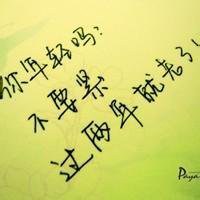 你年轻吗?
不要紧
过两年就老了!
Paya